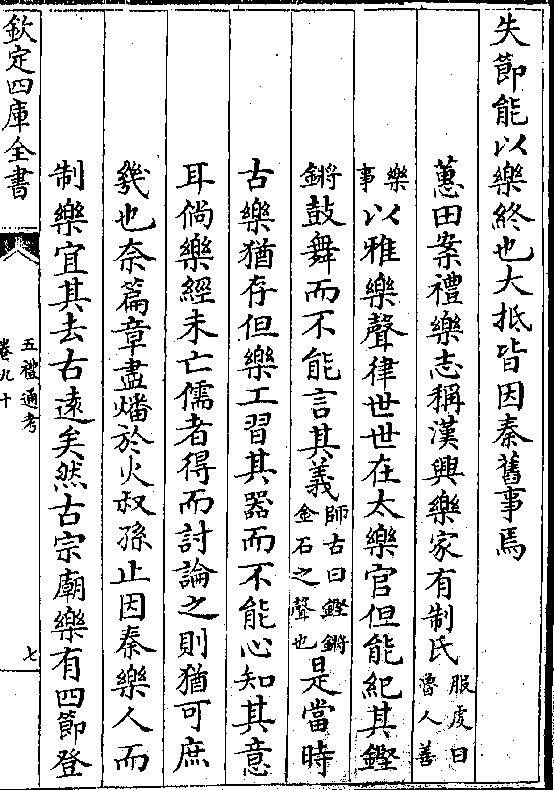 失節能以樂終也大抵皆因秦舊事焉
蕙田案禮樂志稱漢興樂家有制氏服虔曰魯人善
樂事以雅樂聲律世世在太樂官但能紀其鏗
鏘鼓舞而不能言其義師古曰鏗鏘金石之聲也是當時
古樂猶存但樂工習其器而不能心知其意
耳倘樂經未亡儒者得而討論之則猶可庶
幾也奈篇章盡燔於火叔孫止因秦樂人而
制樂宜其去古遠矣然古宗廟樂有四節登
欽定四庫全書
五禮通考
卷九十
七